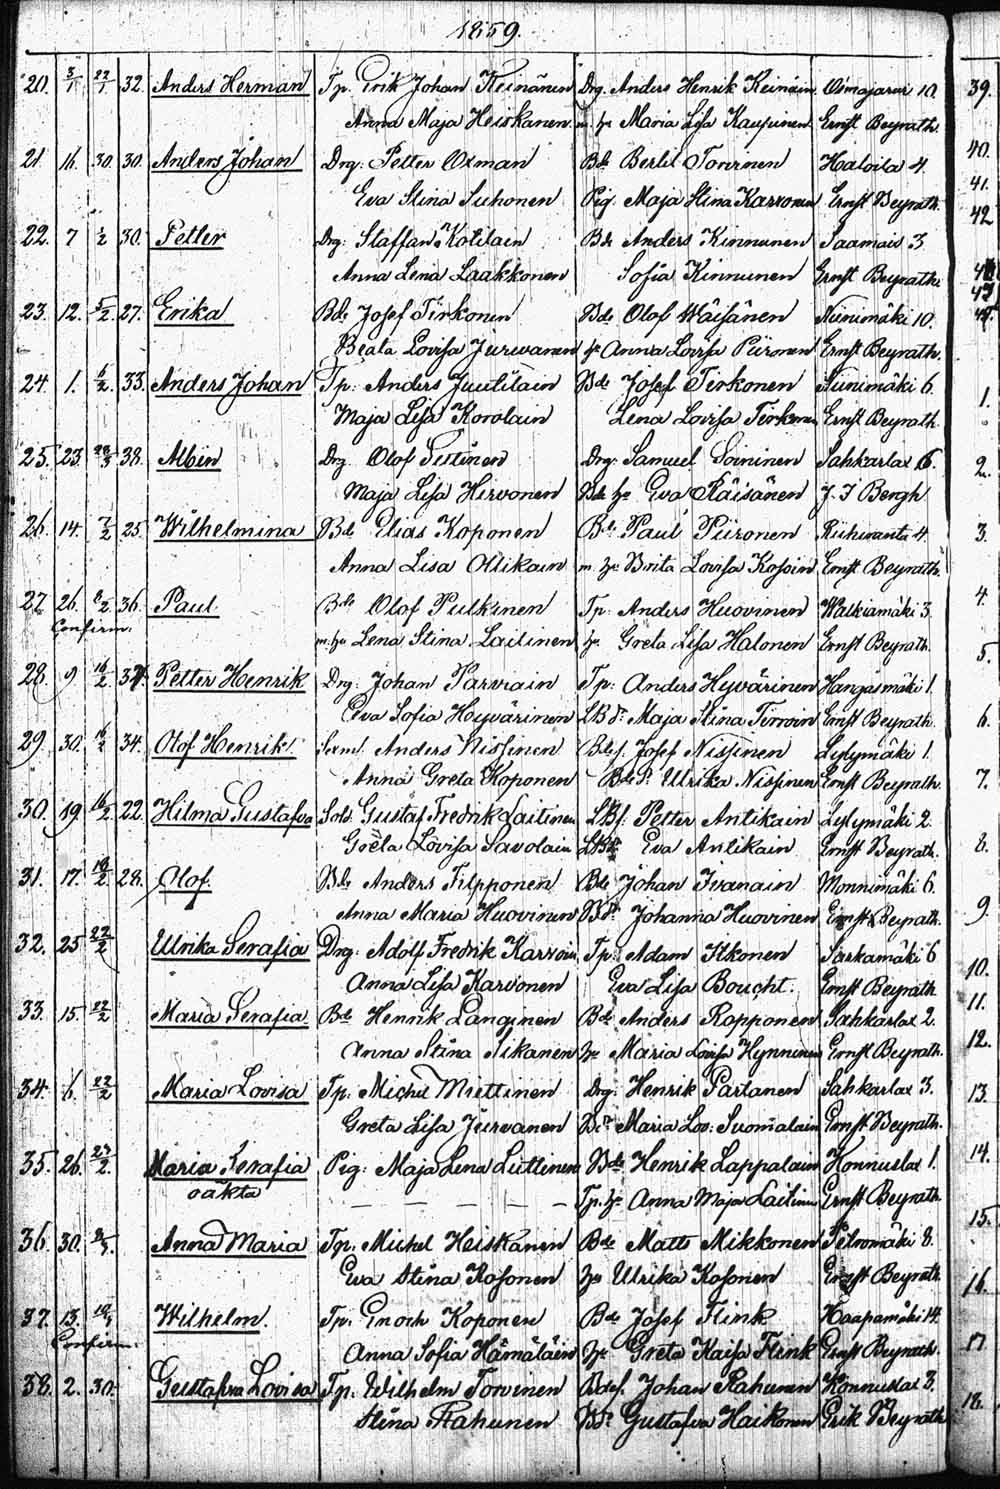 1859.
20. 3/1 22/1 32. Anders Herman Tp. Erik Johan Keinänen Drg. Anders Henrik Keinäin Osmajarvi 10. 39.
Anna Maja Heiskanen m. hu Maria Lisa Kaupinen Ernst Beyrath.
21. 16. 30. 30. Anders Johan Drg: Petter Oxman Bde Bertil Torvinen Halola 4. 40.
Eva Stina Suhonen Pig. Maja Stina Karvonen Ernst Beyrath. 41.
42
22. 7 1/2 30. Petter Drg: Staffan Kotilain Bde Anders Kinnunen Saamais 3
Anna Lena Laakkonen Sofia Kinnunen Ernst Beyrath.
23. 12. 5/2. 27. Erika Bde Josef Tirkonen Bde Olof Wäisänen Niinimäki 10.
Beata Lovisa Jurvanen hu Anna Lovisa Piironen Ernst Beyrath.
24. 1. 6/2. 33. Anders Johan Tp: Anders Juutilain Bde Josef Tirkonen Niinimäki 6. 1.
Maja Lisa Korolain Lena Lovisa Tirkonen Ernst Beyrath.
25. 23. 38. Albin Drg. Olof Tistinen Drg. Samuel Soininen Sahkarlax 6. 2.
Maja Lisa Hirvonen Bde hu Eva Räisänen J. I Bergh
26. 14. 7/2 25. Wilhelmina Bde Elias Koponen Bde Paul Piironen Riihiranta 4. 3.
Anna Lisa Ollikain m. hu Brita Lovisa Kosoin Ernst Beyrath.
27 26. 8/2 36. Paul Bde Olof Pulkinen Tp. Anders Huovinen Walkiamäki 3. 4.
Confirm. m. hu Lena Stina Laitinen hu Greta Lisa Halonen Ernst Beyrath. 5.
28. 9 16/2. 37. Petter Henrik Drg: Johan Parviain Tp: Anders Hyvärinen Hangasmäki 1.
Eva Sofia Hyvärinen Maja Stina Ernst Beyrath. 6.
29. 30. 16/2 34. Olof Henrik. Anders Nissinen Bdes. Josef Nissinen Lylymäki 1.
Anna Greta Koponen Bde dr Ulrika Nissinen Ernst Beyrath. 7.
30. 19. 16/2 22. Hilma Gustafva Sold: Gustaf Fredrik Laitinen LBs. Petter Antikain Lylymäki 2.
Greta Lovisa Savolain Eva Antikain Ernst Beyrath. 8.
31. 17. 18/2 28. Olof. Bde Anders Filpponen Bde Johan Ivanain Monnimäki 6.
Anna Maria Huovinen Bdr. Johanna Huovinen Ernst Beyrath. 9.
32. 25 22/2 Ulrika Serafia Drg: Adolf Fredrik Karvoin Tp. Adam Itkonen Särkamäki 6
Anna Lisa Karvonen Eva Lisa Boucht. Ernst Beyrath 10.
33. 15. 22/2 Maria Serafia. Bde Henrik Langinen Bde Anders Ropponen Sahkarlax 2. 11.
Anna Stina Sikanen hu Maria Lovisa Hynninen Ernst Beyrath. 12.
34. 6. 22/2 Maria Lovisa Tp: Michel Miettinen Drg. Henrik Partanen Sahkarlax 3. 13.
Greta Lisa Jurvanen Maria Lov: Suomalain Ernst Beyrath.
35. 26. 27/2. Maria Serafia Pig: Maja Lena Luttinen Bde Henrik Lappalain Konnuslax 1. 14.
oäkta — — — — — Tp. hu Anna Maja Laitinen Ernst Beyrath.
15.
36. 30. Anna Maria Tp. Michel Heiskanen Bde Matts Mikkonen Petromäki 8.
Eva Stina Kosonen hu Ulrika Kosonen Ernst Beyrath 16.
37. 13. Wilhelm. Tp: Enoch Koponen Bde Josef Flink Haapamäki 14.
Confirm. Anna Sofia Hämäläin hu Greta Kaisa Flink Ernst Beyrath. 17
38. 2. 30. Gustafva Lovisa Tp. Wilhelm Torvinen Bdes. Johan Rahunen Konnuslax 3.
Stina Rahunen Bdr Gustafva Haikonen Erik Beyrath 18.